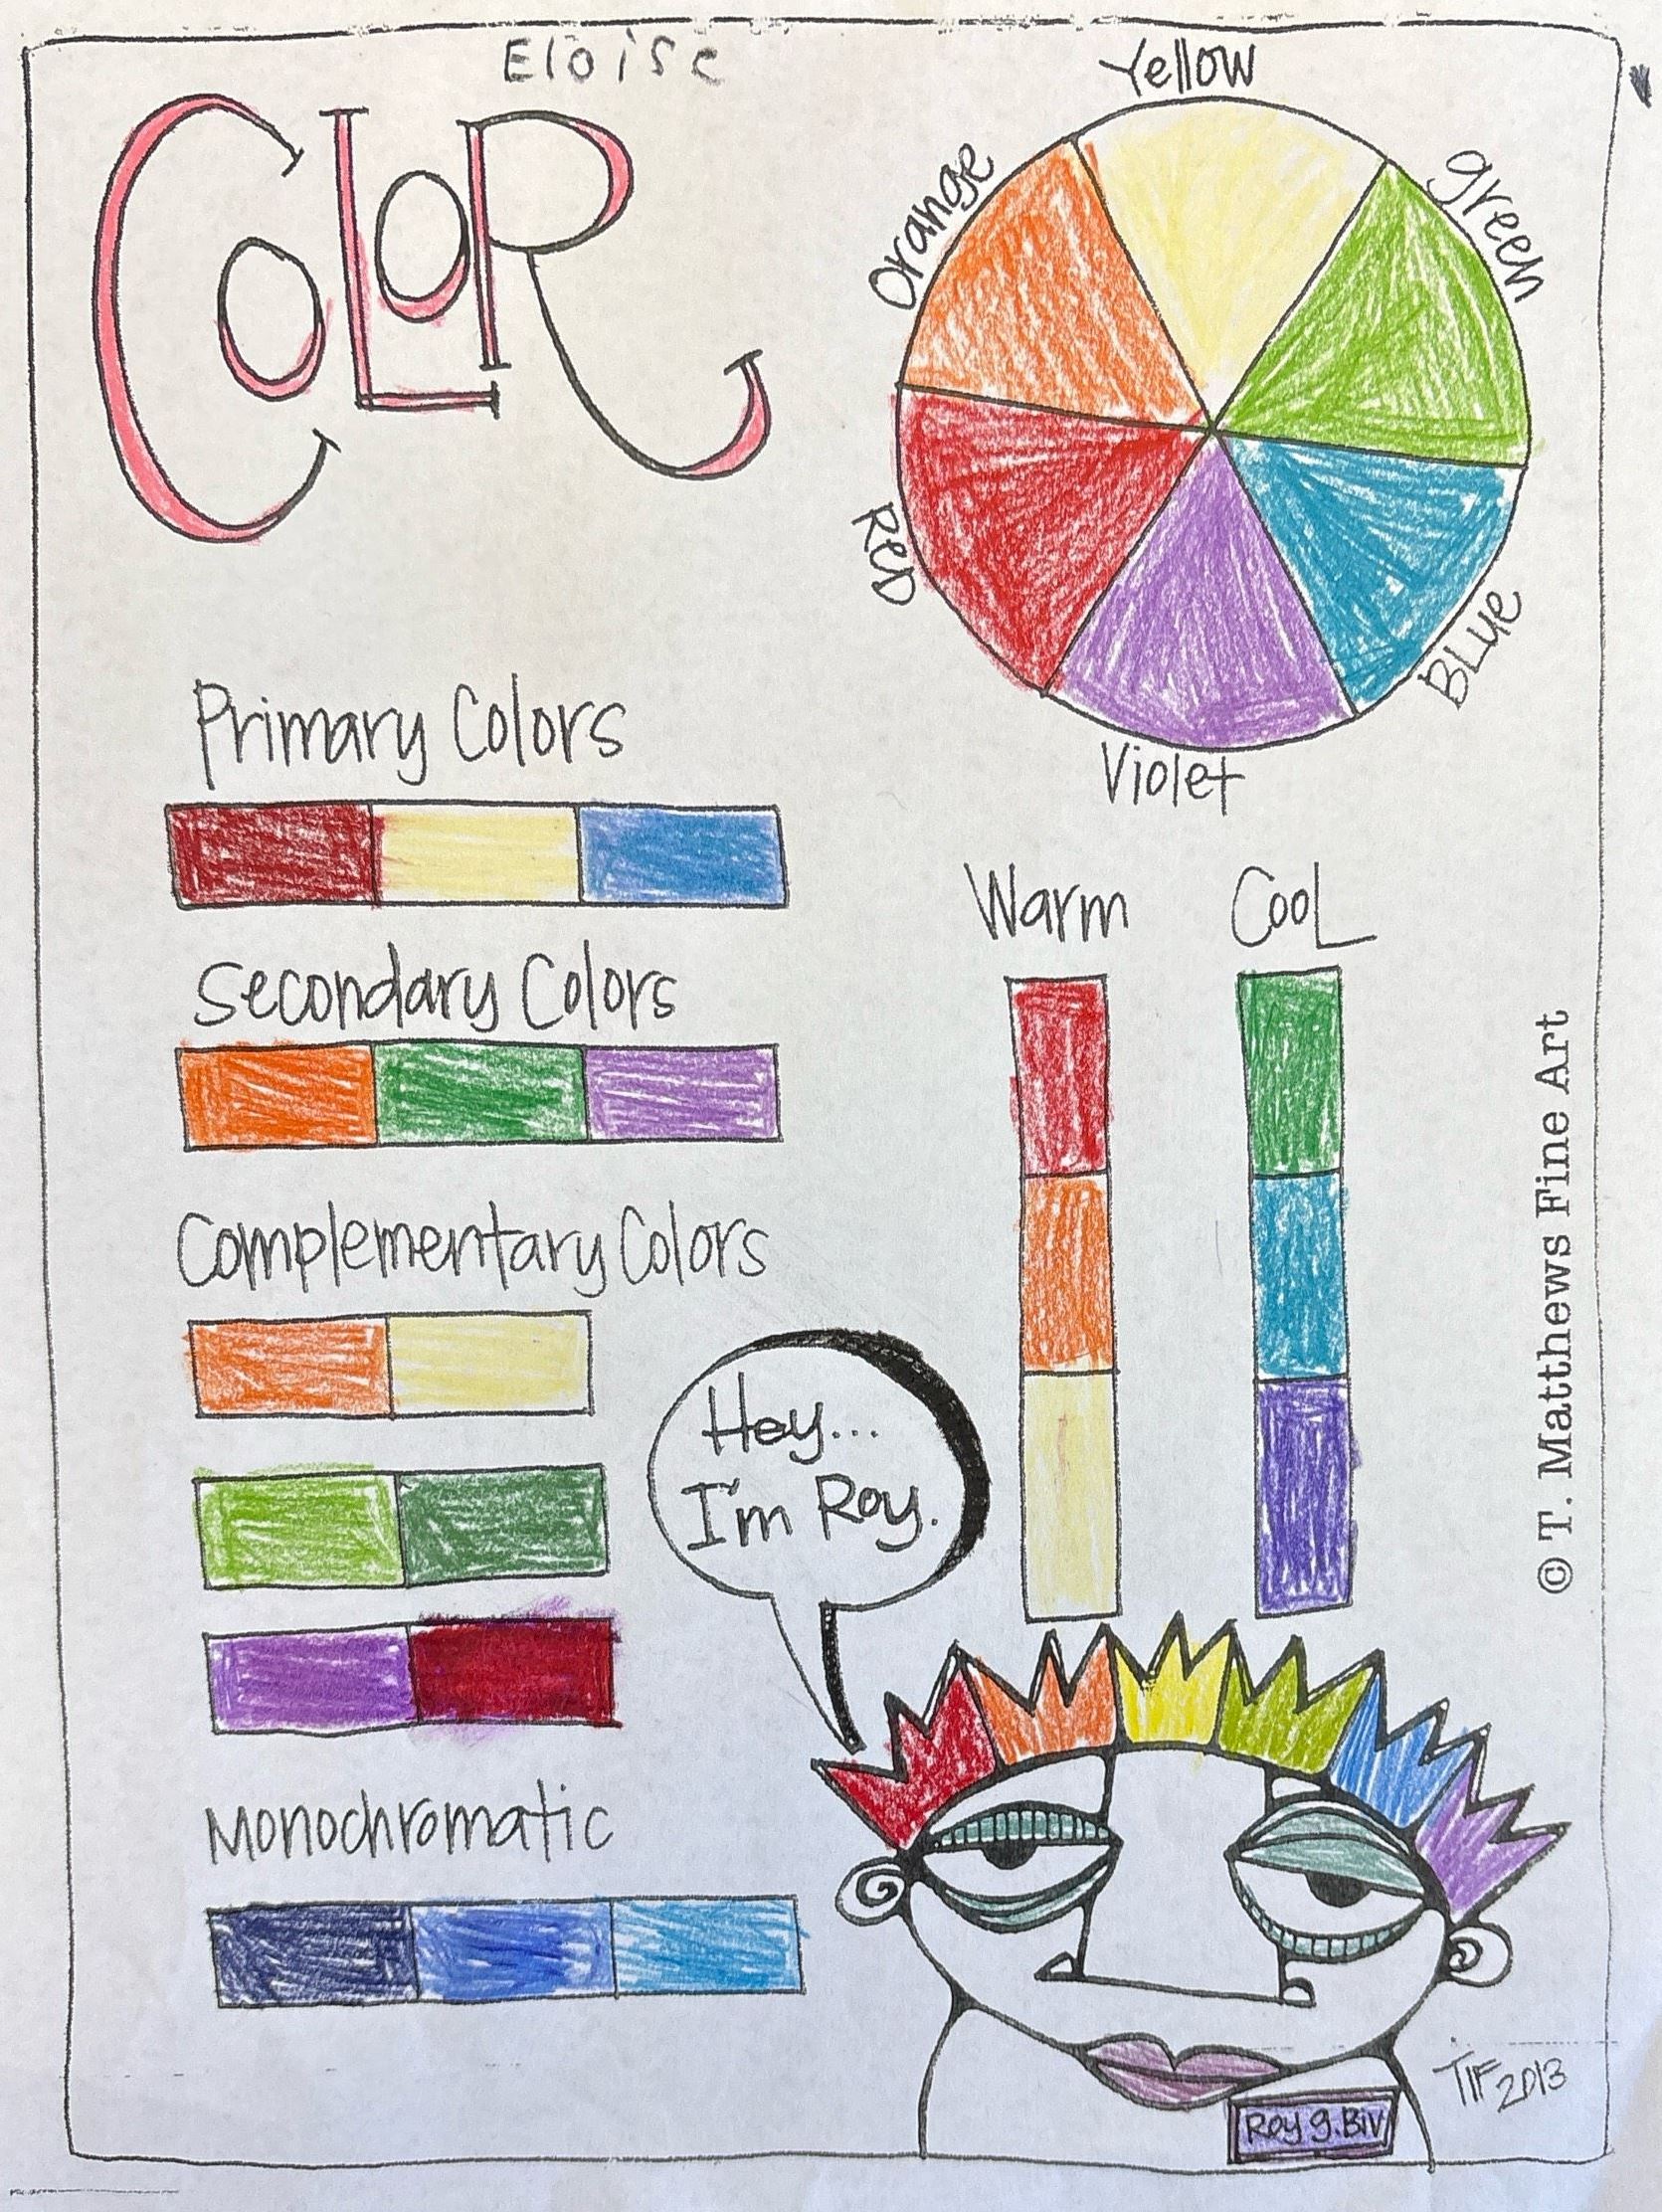 Eloise
COLOR
Yellow
Orange
green
Red
BLue
Violet
Primary Colors
Secondary Colors
Complementary Colors
Monochromatic
Warm
CooL
Hey...
I'm Roy.
© T. Matthews Fine Art
TIF 2013
Roy g. Biv